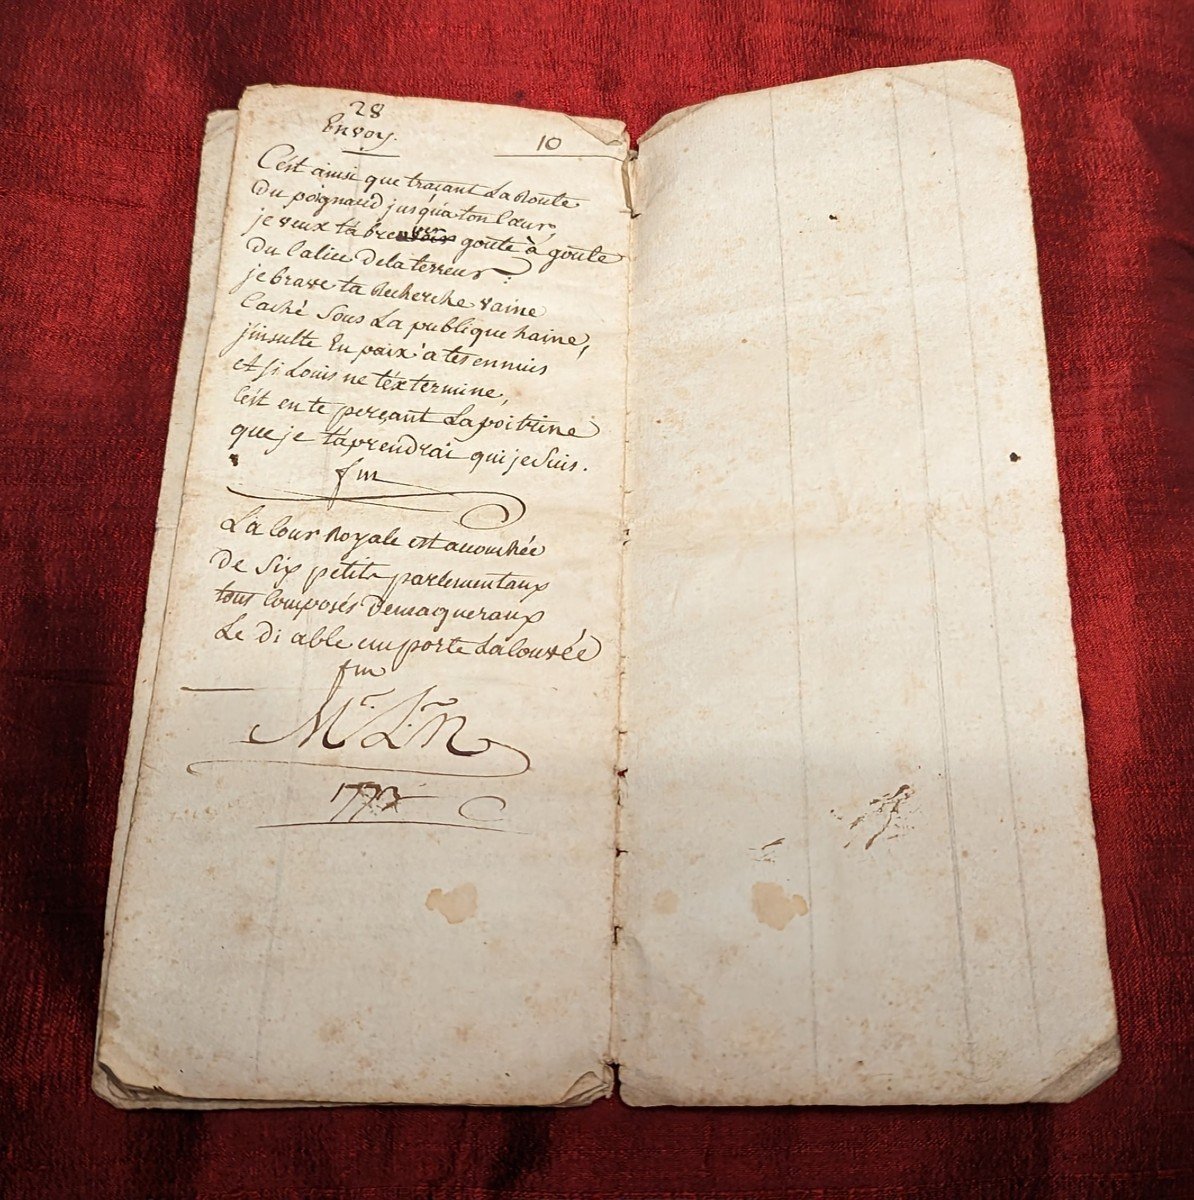 28
Envoy.
10
C'est ainsi que traçant La Route
Du poignard jusqu'a ton Cœur,
je veux t'abreuver goute à goute
Du Calice de la terreur:
je brave ta Recherche vaine
Caché Sous La publique haine,
j'insulte En paix a tes ennuis
Et si Louis ne t'éxtermine,
C'est en te perçant La poitrine
que je t'aprendrai qui je Suis.
fin
La Cour Royale est accouchée
De Six petits parlementaux
tous Composés De maqueraux
Le Di able emporte La Couvée
fin
Mr. Lrn